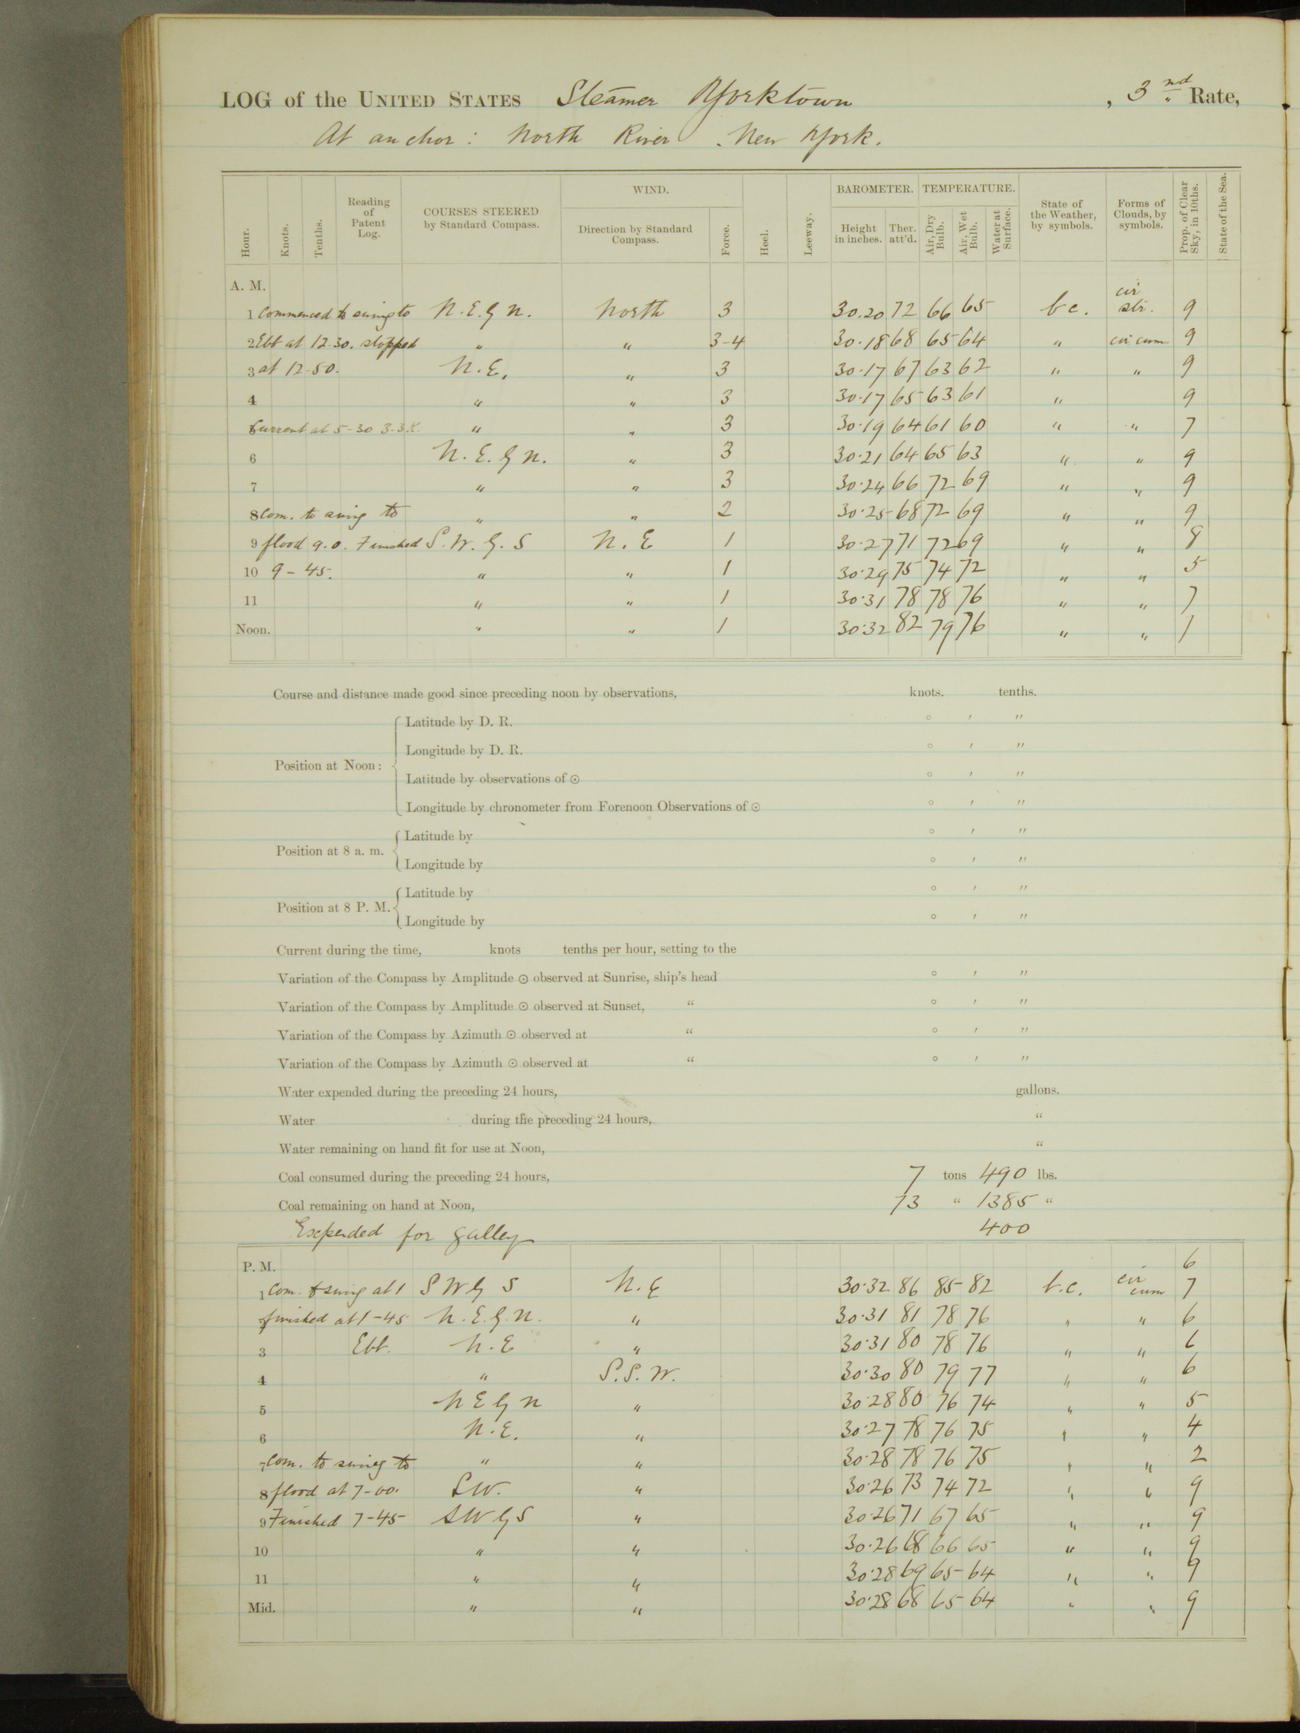 LOG of the UNITED STATES Steamer Yorktown, 3nd Rate,
At anchor: North River. New York.
Hour. Knots. Tenths. Reading of Patent Log. COURSES STEERED by Standard Compass. WIND. Direction by Standard Compass. Force. Heel. Leeway. BAROMETER. Height in inches. Ther. att'd. TEMPERATURE. Air, Dry Bulb. Air, Wet Bulb. Water at Surface. State of the Weather, by symbols. Forms of Clouds, by symbols. Prop. of Clear Sky, in 10ths. State of the Sea.
A. M.
1 Commenced to swing to N.E. by N. North 3 30.20 72 66 65 b c. cir str. 9
2 Ebt at 12.30. stopped " " 3-4 30.18 68 65 64 " cir cum 9
3 at 12-50. N.E. " 3 30.17 67 63 62 " " 9
4 " " 3 30.17 65 63 61 " 9
Current at 5-30 3.3 K. " " 3 30.19 64 61 60 " " 7
6 N.E. by N. " 3 30.21 64 65 63 " " 9
7 " " 3 30.24 66 72 69 " " 9
8 Com. to swing to " " 2 30.25 68 72 69 " " 9
9 flood 9.0. Finished S.W. by S N.E 1 30.27 71 72 69 " " 8
10 9-45. " " 1 30.29 75 74 72 " " 5
11 " " 1 30.31 78 78 76 " " 7
Noon. " " 1 30.32 82 79 76 " " 1
Course and distance made good since preceding noon by observations, knots. tenths.
Position at Noon: Latitude by D. R. ° ′ ″
Longitude by D. R. ° ′ ″
Latitude by observations of ☉ ° ′ ″
Longitude by chronometer from Forenoon Observations of ☉ ° ′ ″
Position at 8 a. m. Latitude by ° ′ ″
Longitude by ° ′ ″
Position at 8 P. M. Latitude by ° ′ ″
Longitude by ° ′ ″
Current during the time, knots tenths per hour, setting to the
Variation of the Compass by Amplitude ☉ observed at Sunrise, ship's head ° ′ ″
Variation of the Compass by Amplitude ☉ observed at Sunset, " ° ′ ″
Variation of the Compass by Azimuth ☉ observed at " ° ′ ″
Variation of the Compass by Azimuth ☉ observed at " ° ′ ″
Water expended during the preceding 24 hours, gallons.
Water during the preceding 24 hours, "
Water remaining on hand fit for use at Noon, "
Coal consumed during the preceding 24 hours, 7 tons 490 lbs.
Coal remaining on hand at Noon, 73 " 1385 "
Expended for galley 400
P. M. 6
1 Com. to swing at 1 S W by S N.E 30.32 86 85 82 b.c. cir cum 7
finished at 1-45 N.E. by N. " 30.31 81 78 76 " " 6
3 Ebt. N.E " 30.31 80 78 76 " " 6
4 " S.S.W. 30.30 80 79 77 " " 6
5 N E by N " 30.28 80 76 74 " " 5
6 N.E. " 30.27 78 76 75 " " 4
7 Com. to swing to " " 30.28 78 76 75 " " 2
8 flood at 7-00. S.W. " 30.26 73 74 72 " " 9
9 Finished 7-45 S W by S " 30.26 71 67 65 " " 9
10 " " 30.26 68 66 65 " " 9
11 " " 30.28 69 65 64 " " 9
Mid. " " 30.28 68 65 64 " " 9